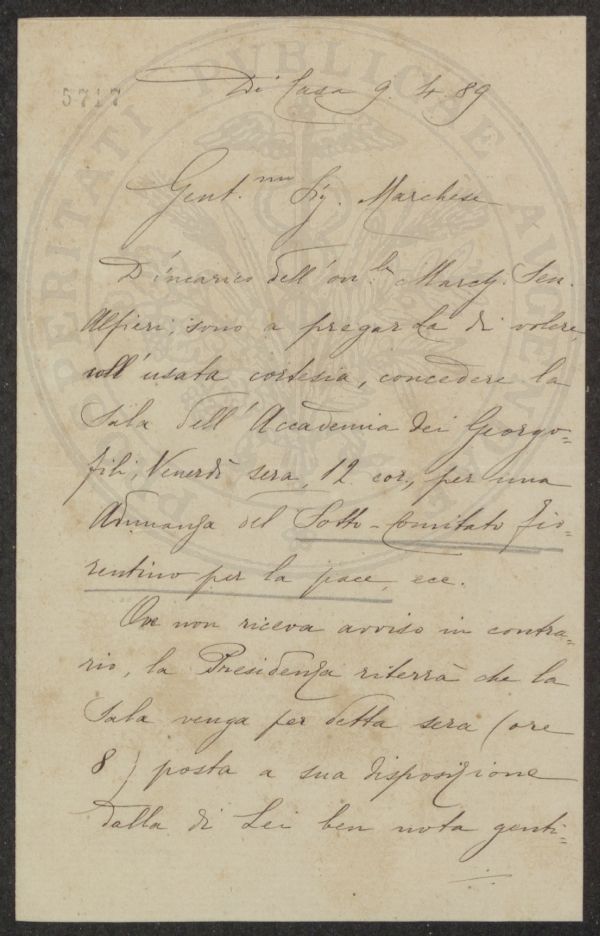 5717
PROSPERITATI PUBLICAE AUGENDAE
Di Casa 9. 4. 89
Gent.mo Sig. Marchese
D'incarico dell'on.le March. Sen.
Alfieri, sono a pregarLa di volere,
coll'usata cortesia, concedere la
Sala dell'Accademia dei Georgo=
fili, Venerdì sera, 12 cor., per una
Adunanza del Sotto-Comitato fio=
rentino per la pace, ecc.
Ove non riceva avviso in contra=
rio, la Presidenza riterrà che la
Sala venga per detta sera (ore
8) posta a sua disposizione
dalla di Lei ben nota genti=